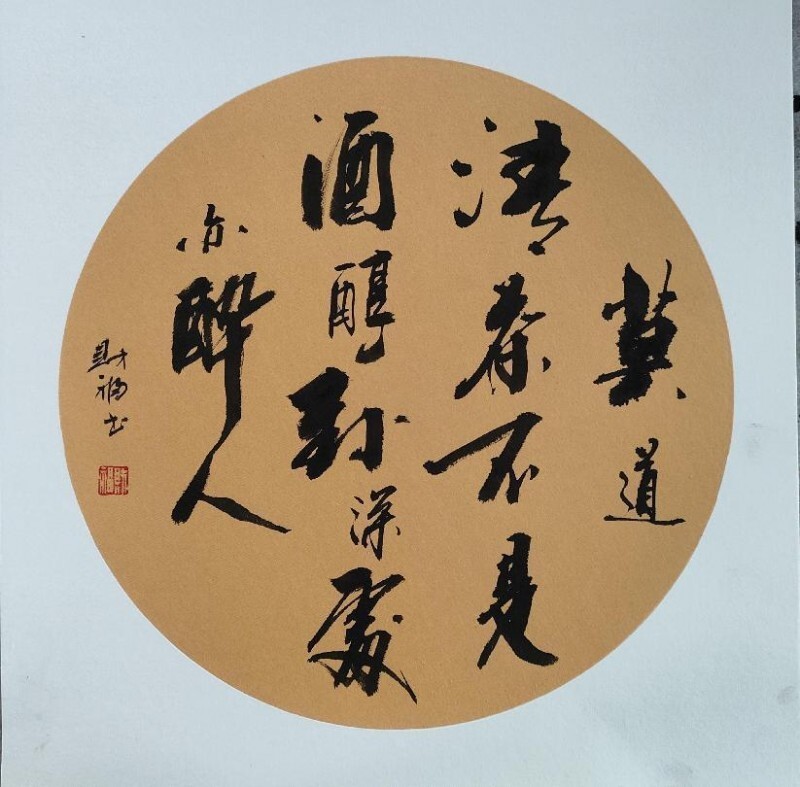 莫道
清茶不是
酒醇到深處
亦醉人
財福书